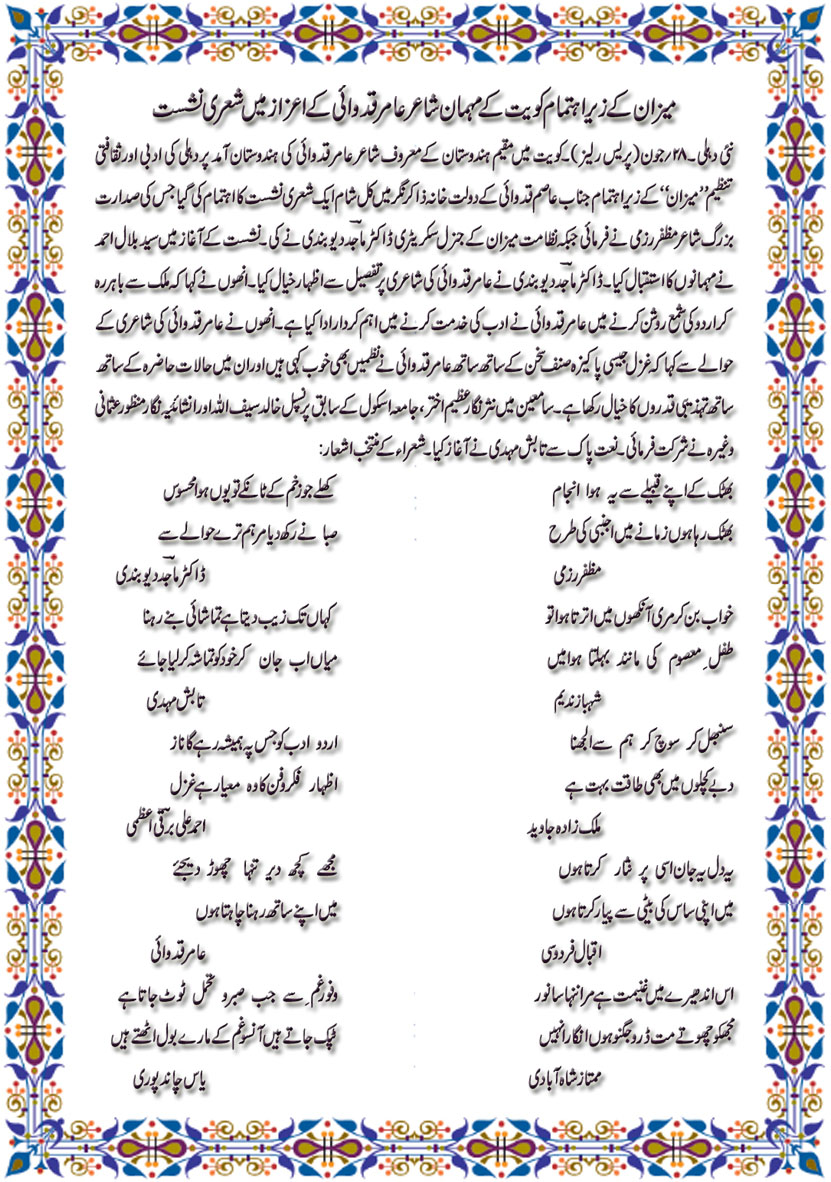 میزان کے زیر اہتمام کویت کے مہمان شاعر عامر قدوائی کے اعزاز میں شعری نشست
نئی دہلی ۔ ۲۸/جون (پریس ریلیز)۔ کویت میں مقیم ہندوستان کے معروف شاعر عامر قدوائی کی ہندوستان آمد پر دہلی کی ادبی اور ثقافتی
تنظیم ’’میزان‘‘ کے زیر اہتمام جناب عاصم قدوائی کے دولت خانہ ذاکر نگر میں کل شام ایک شعری نشست کا اہتمام کی گیا جس کی صدارت
بزرگ شاعر مظفر رزمی نے فرمائی جبکہ نظامت میزان کے جنرل سکریٹری ڈاکٹر ماجد دیوبندی نے کی ۔ نشست کے آغاز میں سید بلال احمد
نے مہمانوں کا استقبال کیا ۔ ڈاکٹر ماجد دیوبندی نے عامر قدوائی کی شاعری پر تفصیل سے اظہار خیال کیا ۔ انھوں نے کہا کہ ملک سے باہر رہ
کر اردو کی شمع روشن کرنے میں عامر قدوائی نے ادب کی خدمت کرنے میں اہم کردار ادا کیا ہے ۔ انھوں نے عامر قدوائی کی شاعری کے
حوالے سے کہا کہ غزل جیسی پاکیزہ صنف سخن کے ساتھ ساتھ عامر قدوائی نے نظمیں بھی خوب کہی ہیں اور ان میں حالات حاضرہ کے ساتھ
ساتھ تہذیبی قدروں کا خیال رکھا ہے ۔ سامعین میں نثر نگار عظیم اختر ، جامعہ اسکول کے سابق پرنسپل خالد سیف اللہ اور انشائیہ نگار منظور عثمانی
وغیرہ نے شرکت فرمائی ۔ نعت پاک سے تابش مہدی نے آغاز کیا ۔ شعراء کے منتخب اشعار :
بھٹک کے اپنے قبیلے سے یہ ہوا انجام
بھٹک رہا ہوں زمانے میں اجنبی کی طرح
مظفر رزمی
کھلے جو زخم کے ٹانکے تو یوں ہوا محسوس
صبا نے رکھ دیا مرہم ترے حوالے سے
ڈاکٹر ماجد دیوبندی
خواب بن کر مری آنکھوں میں اترتا ہوا تو
طفل معصوم کی مانند بہلتا ہوا میں
شہباز ندیم
کہاں تک زیب دیتا ہے تماشائی بنے رہنا
میاں اب جان کر خود کو تماشہ کر لیا جائے
تابش مہدی
سنبھل کر سوچ کر ہم سے الجھنا
دبے کچلوں میں بھی طاقت بہت ہے
ملک زادہ جاوید
اردو ادب کو جس پہ ہمیشہ رہے گا ناز
اظہار فکر و فن کا وہ معیار ہے غزل
احمد علی برقی اعظمی
یہ دل یہ جان اسی پر نثار کرتا ہوں
میں اپنی ساس کی بیٹی سے پیار کرتا ہوں
اقبال فردوسی
مجھے کچھ دیر تنہا چھوڑ دیجئے
میں اپنے ساتھ رہنا چاہتا ہوں
عامر قدوائی
اس اندھیرے میں غنیمت ہے مرا ننھا سا نور
مجھکو چھوتے مت ڈرو جگنو ہوں انگارا نہیں
ممتاز شاہ آبادی
وفور غم سے جب صبر و تحمل ٹوٹ جاتا ہے
ٹپک جاتے ہیں آنسو غم کے مارے بول اٹھتے ہیں
یاس چاند پوری